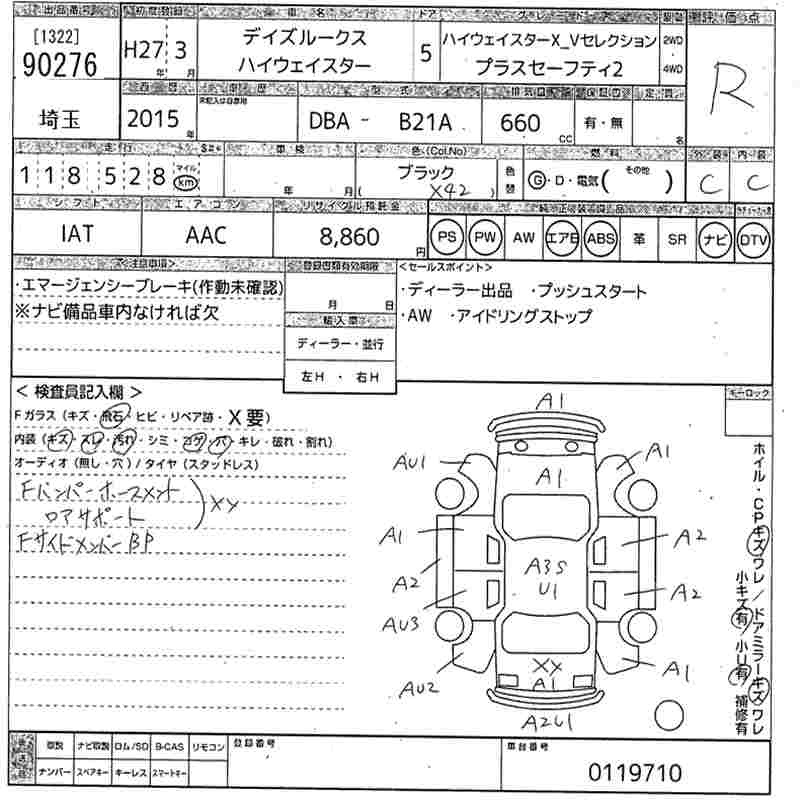 出品番号 初度登録 車名 ドア グレード 駆動 評価点
[1322]
90276
H27 3
年 月
デイズルークス
ハイウェイスター
5
ハイウェイスターX_Vセレクション
プラスセーフティ2
2WD
4WD
R
西暦 車歴 型式 排気量 保証書 定員
埼玉
2015 年
未記入は自家用
DBA - B21A
660 cc
有・無
名
走行 車検 色(Col.No) 燃料 外装 内装
118528
マイル
km
年 月
ブラック
( X42 )
色替
G・D・電気( その他 )
C C
シフト エアコン リサイクル預託金 純正装備品
IAT
AAC
8,860 円
PS PW AW エアB ABS 革 SR ナビ DTV
注意事項>
・エマージェンシーブレーキ(作動未確認)
※ナビ備品車内なければ欠
登録書類有効期限
月 日
輸入車
ディーラー・並行
左H ・ 右H
<セールスポイント>
・ディーラー出品 ・プッシュスタート
・AW ・アイドリングストップ
< 検査員記入欄 >
Fガラス (キズ・飛石・ヒビ・リペア跡・X要)
内装 (キズ・スレ・汚れ・シミ・コゲ・穴・キレ・破れ・割れ)
オーディオ (無し・穴) / タイヤ (スタッドレス)
Fバンパーホースメント
ロアサポート
) XY
FサイドメンバーBP
キーロック
A1
AU1
A1
A1
A1
A2
A3S
U1
A2
A2
AU3
AU2
XX
A1
A1
A2U1
ホイル・CPキズワレ / ドアミラーキズワレ
小キズ有 / 小U有 補修有
車検 ナビ取説 ロム/SD B-CAS リモコン
ナンバー スペアキー キーレス スマートキー
登録番号
車台番号
0119710